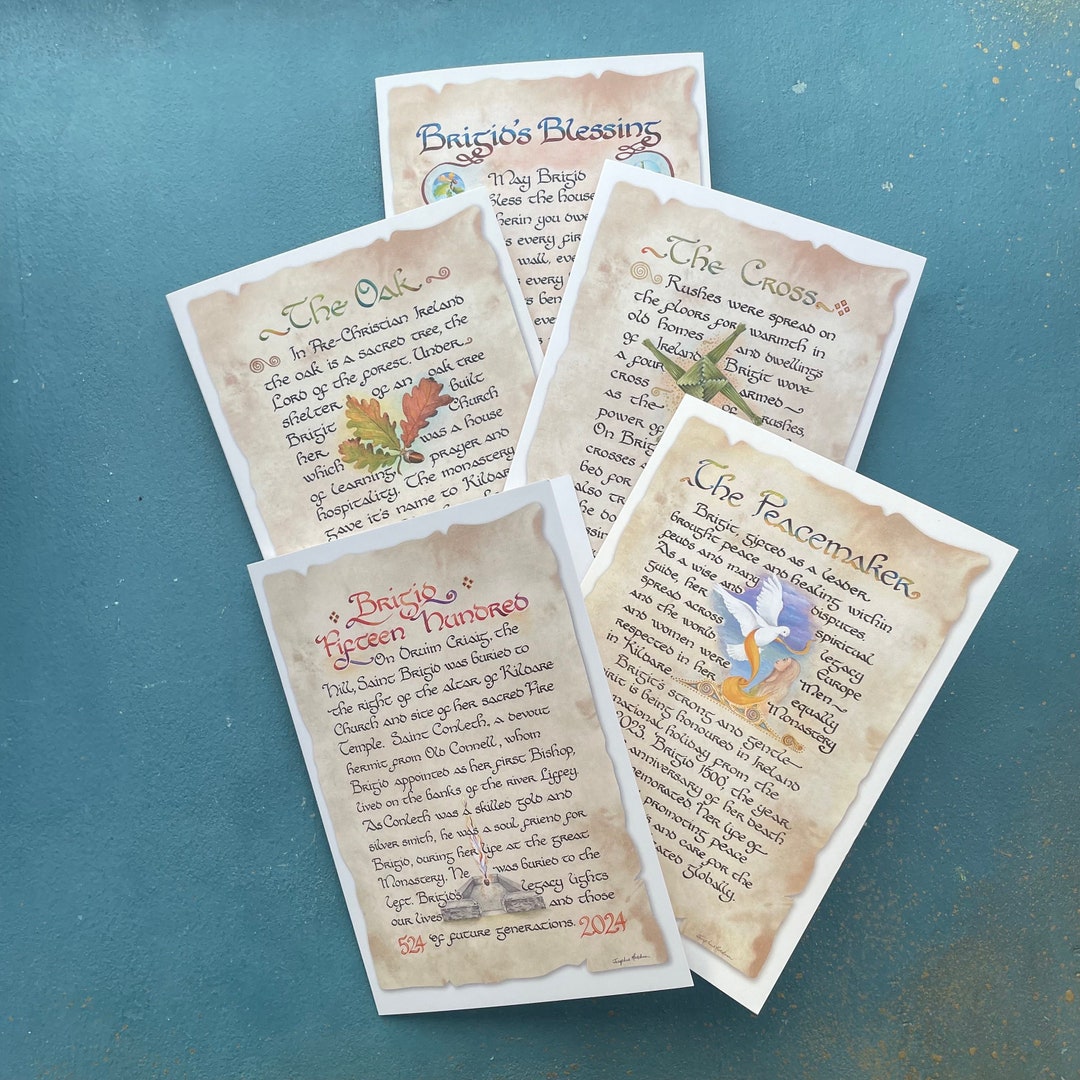 Brigid's Blessing
May Brigid
Bless the house
wherein you dwe
every fir
wall, eve
every
ben
eve
The Oak
In Pre-Christian Ireland
the oak is a sacred tree, the
Lord of the forest. Under
shelter of an oak tree
Brigit built
her Church
which was a house
of learning, prayer and
hospitality. The monastery
gave it's name to Kildare
The Cross
Rushes were spread on
the floors for warmth in
old homes and dwellings
of Ireland Brigit wove
a four armed
cross of rushes,
as the
power of
On Brig
crosses a
bed for
also tr
he do
The Peacemaker
Brigit, gifted as a leader
brought peace and healing within
feuds and many disputes.
As a wise and spiritual
guide, her legacy
spread across Europe
and the world Men
and women were equally
respected in her Monastery
in Kildare
Brigit's strong and gentle
spirit is being honoured in Ireland
national holiday from the
2023. 'Brigid 1500', the year
anniversary of her death
emorated. Her life of
promoting peace
and care for the
ated globally.
Brigid
Fifteen Hundred
On Druim Criaig, the
Hill, Saint Brigid was buried to
the right of the altar of Kildare
Church and site of her sacred Fire
Temple. Saint Conleth, a devout
hermit from Old Connell, whom
Brigid appointed as her first Bishop,
lived on the banks of the river Liffey.
As Conleth was a skilled gold and
silver smith, he was a soul friend for
Brigid, during her life at the great
Monastery. He was buried to the
left. Brigid's legacy lights
our lives and those
524 of future generations. 2024